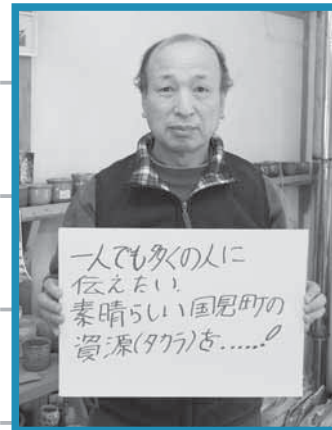 一人でも多くの人に
伝えたい
素晴らしい国見町の
資源(タカラ)を......!